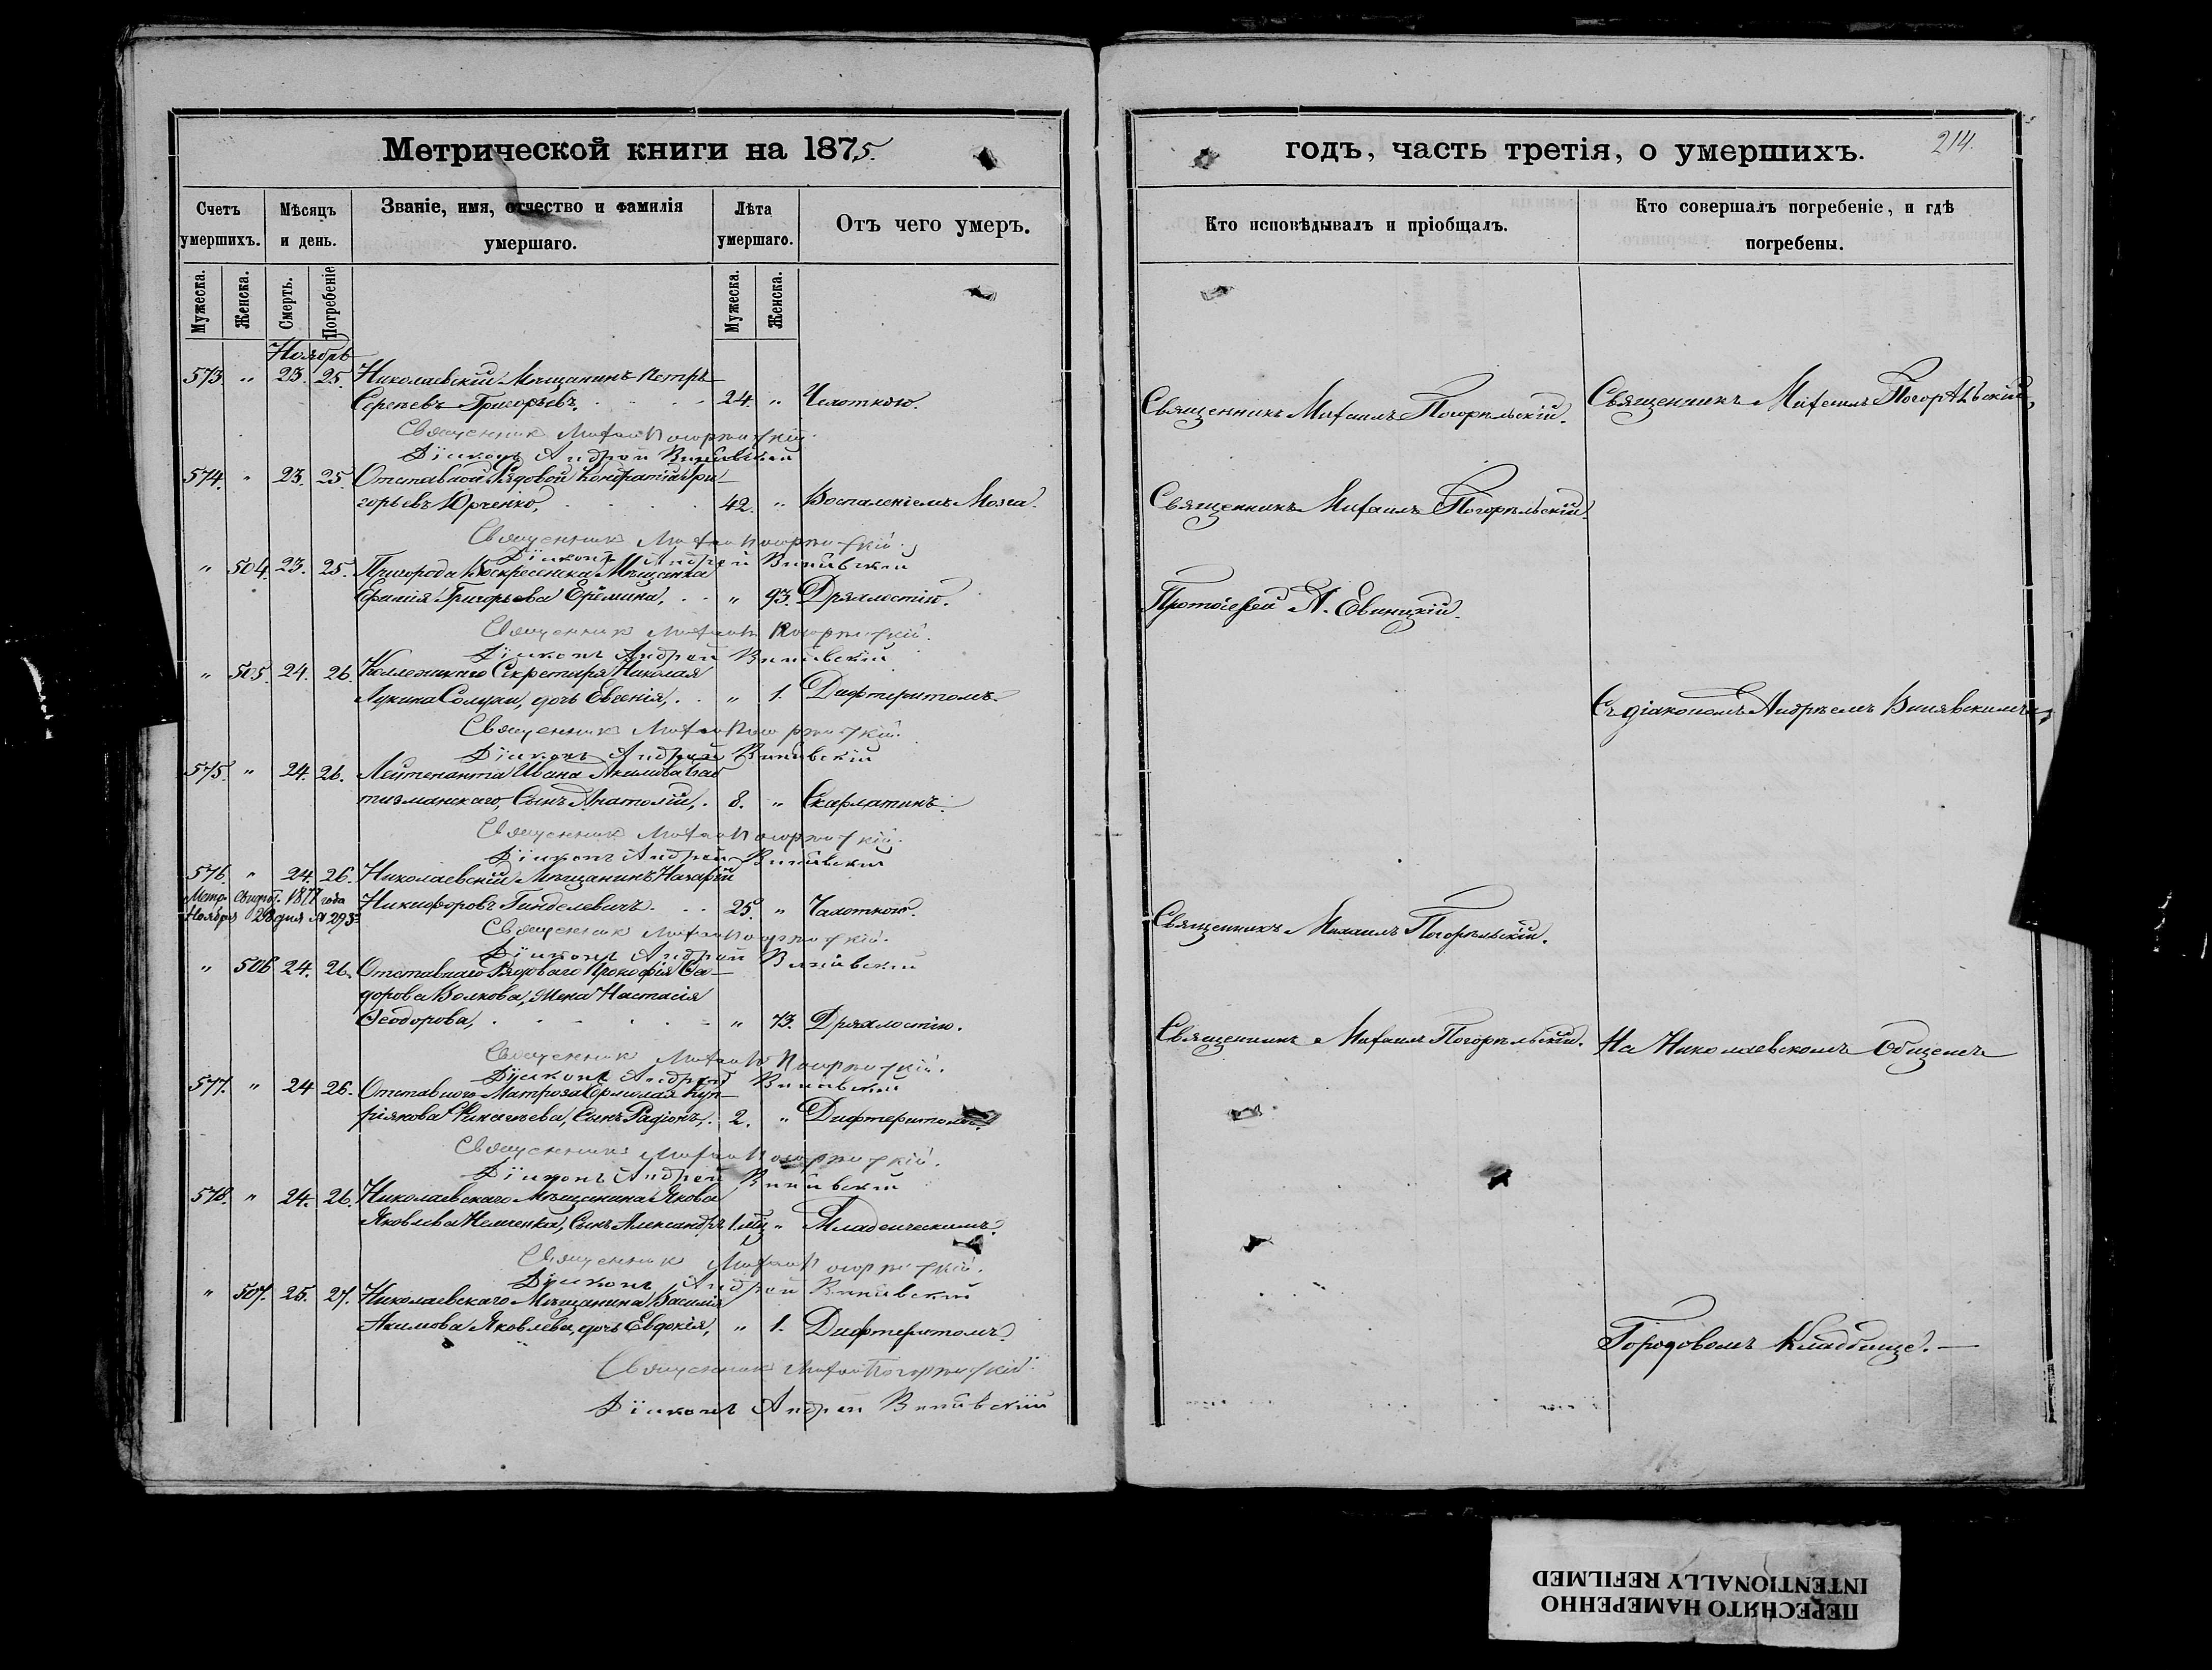 Метрической книги на 1875.
Счетъ умершихъ.
Мѣсяцъ и день.
Званіе, имя, отчество и фамилія умершаго.
Лѣта умершаго.
Отъ чего умеръ.
Мужеска.
Женска.
Смерть.
Погребеніе
Мужеска.
Женска.
Ноябрь
573 " 23. 25. Николаевскій Мѣщанинъ Петръ
Сергѣевъ Григорьевъ, 24. " Чахоткою.
Священникъ Михаилъ Погорѣльскій.
Діаконъ Андрей Винявскій
574. " 23. 25. Отставной Рядовой Кондратій Гри-
горьевъ Юрченко, 42. " Воспаленіемъ Мозга.
Священникъ Михаилъ Погорѣльскій.
Діаконъ Андрей Винявскій
" 504. 23. 25. Пригорода Воскресенска Мѣщанка
Григорьева Ерёмина, " 93. Дряхлостію.
Священникъ Михаилъ Погорѣльскій.
Діаконъ Андрей Винявскій
" 505. 24. 26. Коллежскаго Секретаря Николая
Лукина дочь Евгенія, " 1. Дифтеритомъ.
Священникъ Михаилъ Погорѣльскій.
Діаконъ Андрей Винявскій
575. " 24. 26. Лейтенанта Ивана Акимова
Сынъ Анатолій, 8. " Скарлатинъ.
Священникъ Михаилъ Погорѣльскій.
Діаконъ Андрей Винявскій
576. " 24. 26. Николаевскій Мѣщанинъ Назарій
Никифоровъ Гинделевичъ. 25. " Чахоткою.
Метр. Свидѣт. 1877 года
Ноября 28 дня № 293
Священникъ Михаилъ Погорѣльскій.
Діаконъ Андрей Винявскій
" 506 24. 26. Отставнаго Рядоваго Прокофія
Волкова, Жена Настасія
Ѳеодорова, " 73. Дряхлостію.
Священникъ Михаилъ Погорѣльскій.
Діаконъ Андрей Винявскій
577. " 24 26. Отставнаго Матроза Ермолая Куп-
ріянова Сынъ Радіонъ, 2. " Дифтеритомъ.
Священникъ Михаилъ Погорѣльскій.
Діаконъ Андрей Винявскій
578. " 24. 26. Николаевскаго Мѣщанина Якова
Яковлева Сынъ Александръ 1 мѣц " Младенческимъ.
Священникъ Михаилъ Погорѣльскій.
Діаконъ Андрей Винявскій
" 507. 25. 27. Николаевскаго Мѣщанина Василія
Акимова Яковлева, дочь Евдокія, " 1. Дифтеритомъ.
Священникъ Михаилъ Погорѣльскій.
Діаконъ Андрей Винявскій
годъ, часть третія, о умершихъ.
214.
Кто исповѣдывалъ и пріобщалъ.
Кто совершалъ погребеніе, и гдѣ погребены.
Священникъ Михаилъ Погорѣльскій.
Священникъ Михаилъ Погорѣльскій.
Протоіерей А.
Священникъ Михаилъ Погорѣльскій.
Священникъ Михаилъ Погорѣльскій.
Священникъ Михаилъ Погорѣльскій,
Съ діакономъ Андреемъ Винявскимъ
На Николаевскомъ Общемъ
Городовомъ Кладбище. —
ПЕРЕСНЯТО НАМЕРЕННО
INTENTIONALLY REFILMED